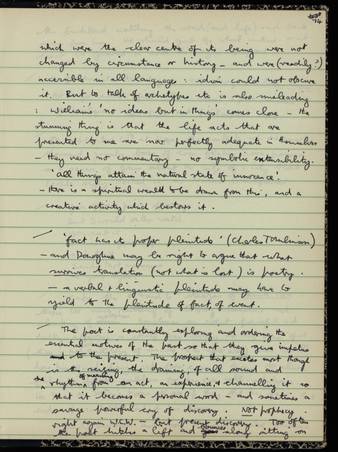 which were the clear centre of its being were not
changed by circumstance or history - and were (readily?)
accessible in all languages: idiom could not obscure
it. But to talk of archetypes etc is also misleading
: Williams' 'no ideas but in things' comes close - the
stunning thing is that the life acts that are
presented to me are now perfectly adequate in themselves
- they need no commentary - no symbolic extensibility.
'all things attain the natural state of innocence'.
- there is a spiritual wealth to be drawn from this, and a
creative activity which bestows it.
'fact has its proper plenitude' (Charles Tomlinson)
- and Donoghue may be right to argue that what
survives translation (not what is lost) is poetry.
- a verbal & linguistic plenitude may have to
yield to the plenitude of fact, of event.
The poet is constantly exploring and ordering the
essential motives of the past so that they give impetus
to the present. The prospect that excites most though
is the seizing, the drawing, of all sound and
the rhythms of meaning from an act, an experience, & channelling it so
that it becomes a personal word - and sometimes a
savage powerful cry of discovery. Not prophecy
right again W.C.W. - but present discovery. Too often
the poet hobbles a left and lung sitting on